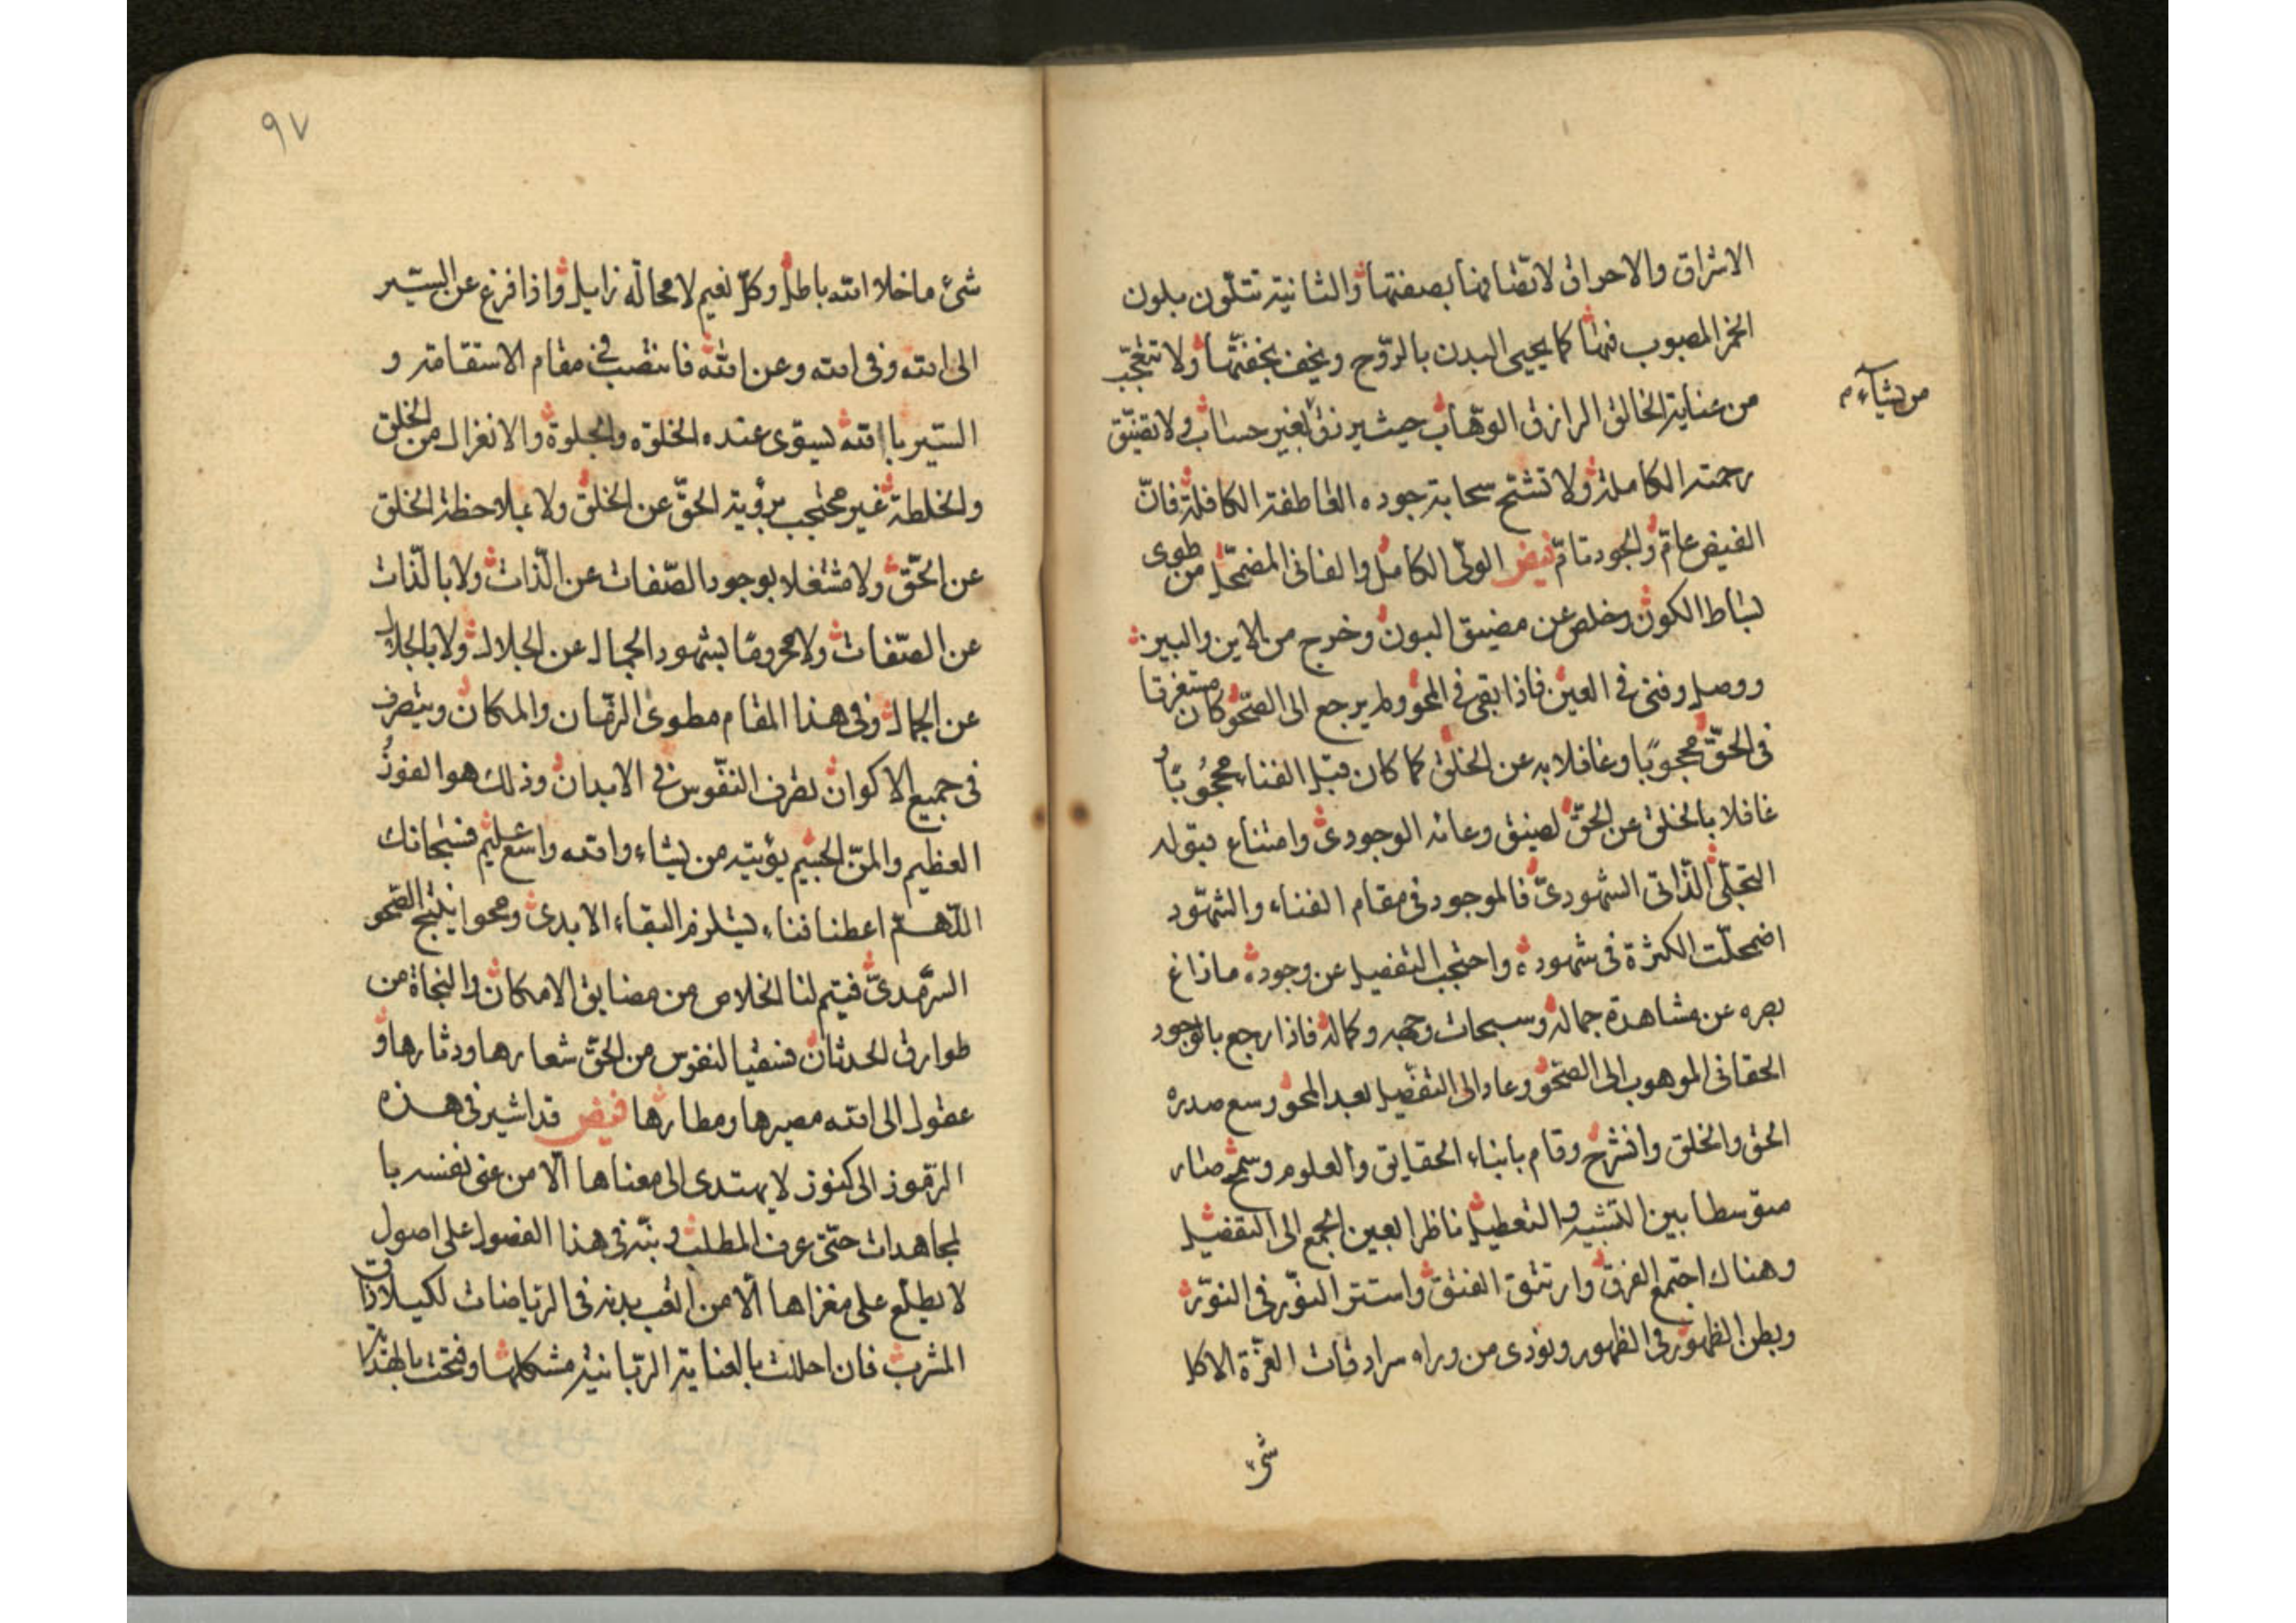 الاشراق والاحراق لاتّصافها بصفتها والثانية تتلّون بلون
الخمر المصبوب فيها كما يحيى البدن بالرّوح ويخف بخفتها ولا تتعجّب
من عناية الخالق الرازق الوّهاب حيث يرزق بغير حساب ولا تضيّق
من يشآء م
رحمته الكاملة ولا تشتح سحابة جوده الكافلة فانّ
الفيض عامّ والجود تامّ فيض الولّى الكامل والفانى المضمحلّ من طوى
بساط الكون وخلص عن مضيق البون وخرج من الاين والبين
ووصل وفنى فى العين فاذا بقى فى المحو ولم يرجع الى الصّحو كان مستغرقا
فى الحقّ محجوبًا وغافلا به عن الخلق كما كان قبل الفناء محجُوبًا و
غافلا بالخلق عن الحقّ لضيق وعائه الوجودى وامتناع قبوله
التجلّى الذّاتى الشهودىّ فالموجود فى مقام الفناء والشهّود
اضمحلّت الكثرة فى شهوده واحتجب التفصيل عن وجوده ما زاغ
بصره عن مشاهدة جماله وسبحات وجهه وكماله فاذا رجع بالوجود
الحقانى الموهوب الى الصّحو وعاد الى التفصيل بعد المحو وسع صدره
الحق والخلق وانشرح وقام بانباء الحقايق والعلوم وسمح صار
متوسطا بين التشبيه والتعطيل ناظرا بعين الجمع الى التفضيل
وهناك اجتمع الفرق وارتتق الفتق واستتر النوّر فى النوّر
وبطن الظهور فى الظهور ونودى من وراء سرادقات العزّة الا كل
شئ
٩٧
شئ ما خلا الله باطل وكلّ نعيم لا محالة زايل واذا فرغ عن السّير
الى الله وفى الله وعن الله فانتصب فى مقام الاستقامة و
السّير بالله يستوى عنده الخلوة والجلوة والانعزال من الخلق
والخلطة غير محتجب برؤية الحقّ عن الخلق ولا بملاحظة الخلق
عن الحّق ولا مشتغلا بوجود الصّفات عن الذّات ولا بالذّات
عن الصّفات ولا محرومًا بشهود الجمال عن الجلال ولا بالجلال
عن الجمال وفى هذا المقام مطوى الزّمان والمكان ويتصرف
فى جميع الاكوان تصرف النفّوس فى الابدان وذلك هو الفوزُ
العظيم والمنّ الجسيم يؤتيه من يشاء والله واسع عليم فسبحانك
اللّهــم اعطنا فناء يستلزم البقاء الابدى ومحوا ينتج الصّحو
السّرمدىّ فيتم لنا الخلاص من مضايق الامكان والنجاة من
طوارق الحدثان فسقيا لنفوس من الحقّ شعارها ودثارها و
عقول الى الله مصيرها ومطارها فيض قد اشير فى هــذه
الرّموز الى كنوز لا يهتدى الى معناها الّا من عنى نفسه با
لمجاهدات حتّى عرف المطلب ونبّه فى هذا الفصول على اصول
لا يطلّع على مغزاها الّا من اتعب بدنه فى الرّياضات لكيلا ذاق
المشرب فان احللت بالعناية الرّبانيّة مشكلها وفتحت